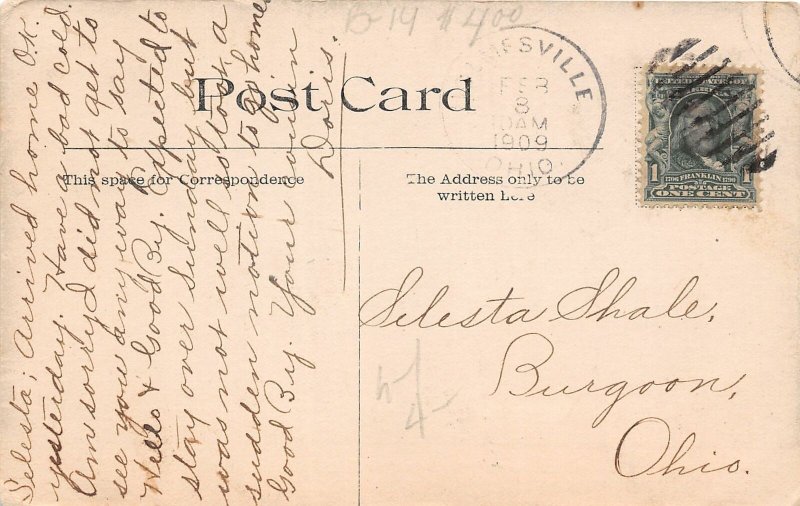 B-19 $4.00
SVILLE
FEB
8
10AM
1909
OHIO
Post Card
This space for Correspondence
The Address only to be
written here
1 1706 FRANKLIN 1790 1
POSTAGE
ONE CENT
Selesta; Arrived home O.K.
yesterday. Have a bad cold.
Am sorry I did not get to
see you any way to say
Hello & Good By. Expected to
stay over Sunday but
was not well & took a
sudden notion to go home
Good By. Your cousin
Doris.
Selesta Shale,
Burgoon,
Ohio.